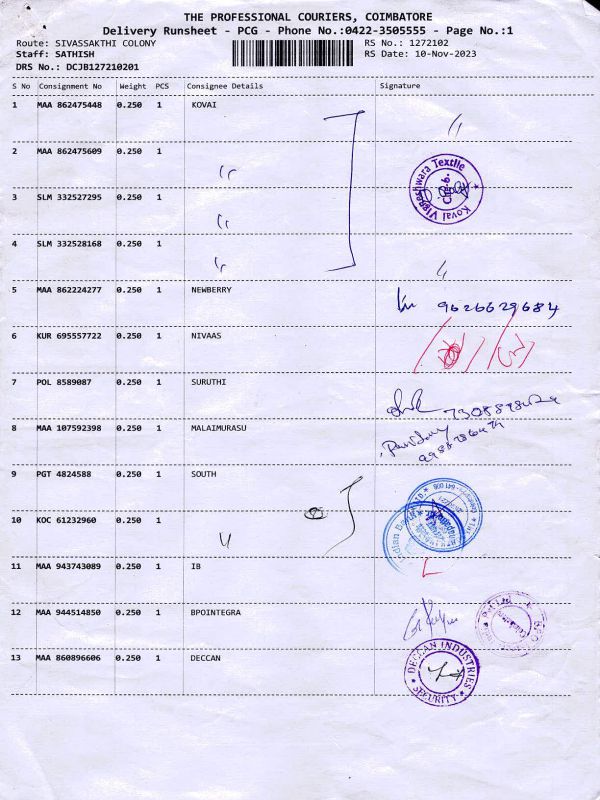 THE PROFESSIONAL COURIERS, COIMBATORE
Delivery Runsheet - PCG - Phone No.:0422-3505555 - Page No.:1
Route: SIVASSAKTHI COLONY
RS No.: 1272102
Staff: SATHISH
RS Date: 10-Nov-2023
DRS No.: DCJB127210201
S No Consignment No Weight PCS Consignee Details Signature
1 MAA 862475448 0.250 1 KOVAI
2 MAA 862475609 0.250 1
3 SLM 332527295 0.250 1
Kovai Vigneshwara Textile
4 SLM 332528168 0.250 1
5 MAA 862224277 0.250 1 NEWBERRY
9626629684
6 KUR 695557722 0.250 1 NIVAAS
7 POL 8589087 0.250 1 SURUTHI
8 MAA 107592398 0.250 1 MALAIMURASU
9 PGT 4824588 0.250 1 SOUTH
10 KOC 61232960 0.250 1
Indian
11 MAA 943743089 0.250 1 IB
12 MAA 944514850 0.250 1 BPOINTEGRA
13 MAA 860896606 0.250 1 DECCAN
DECCAN INDUSTRIES
SECURITY